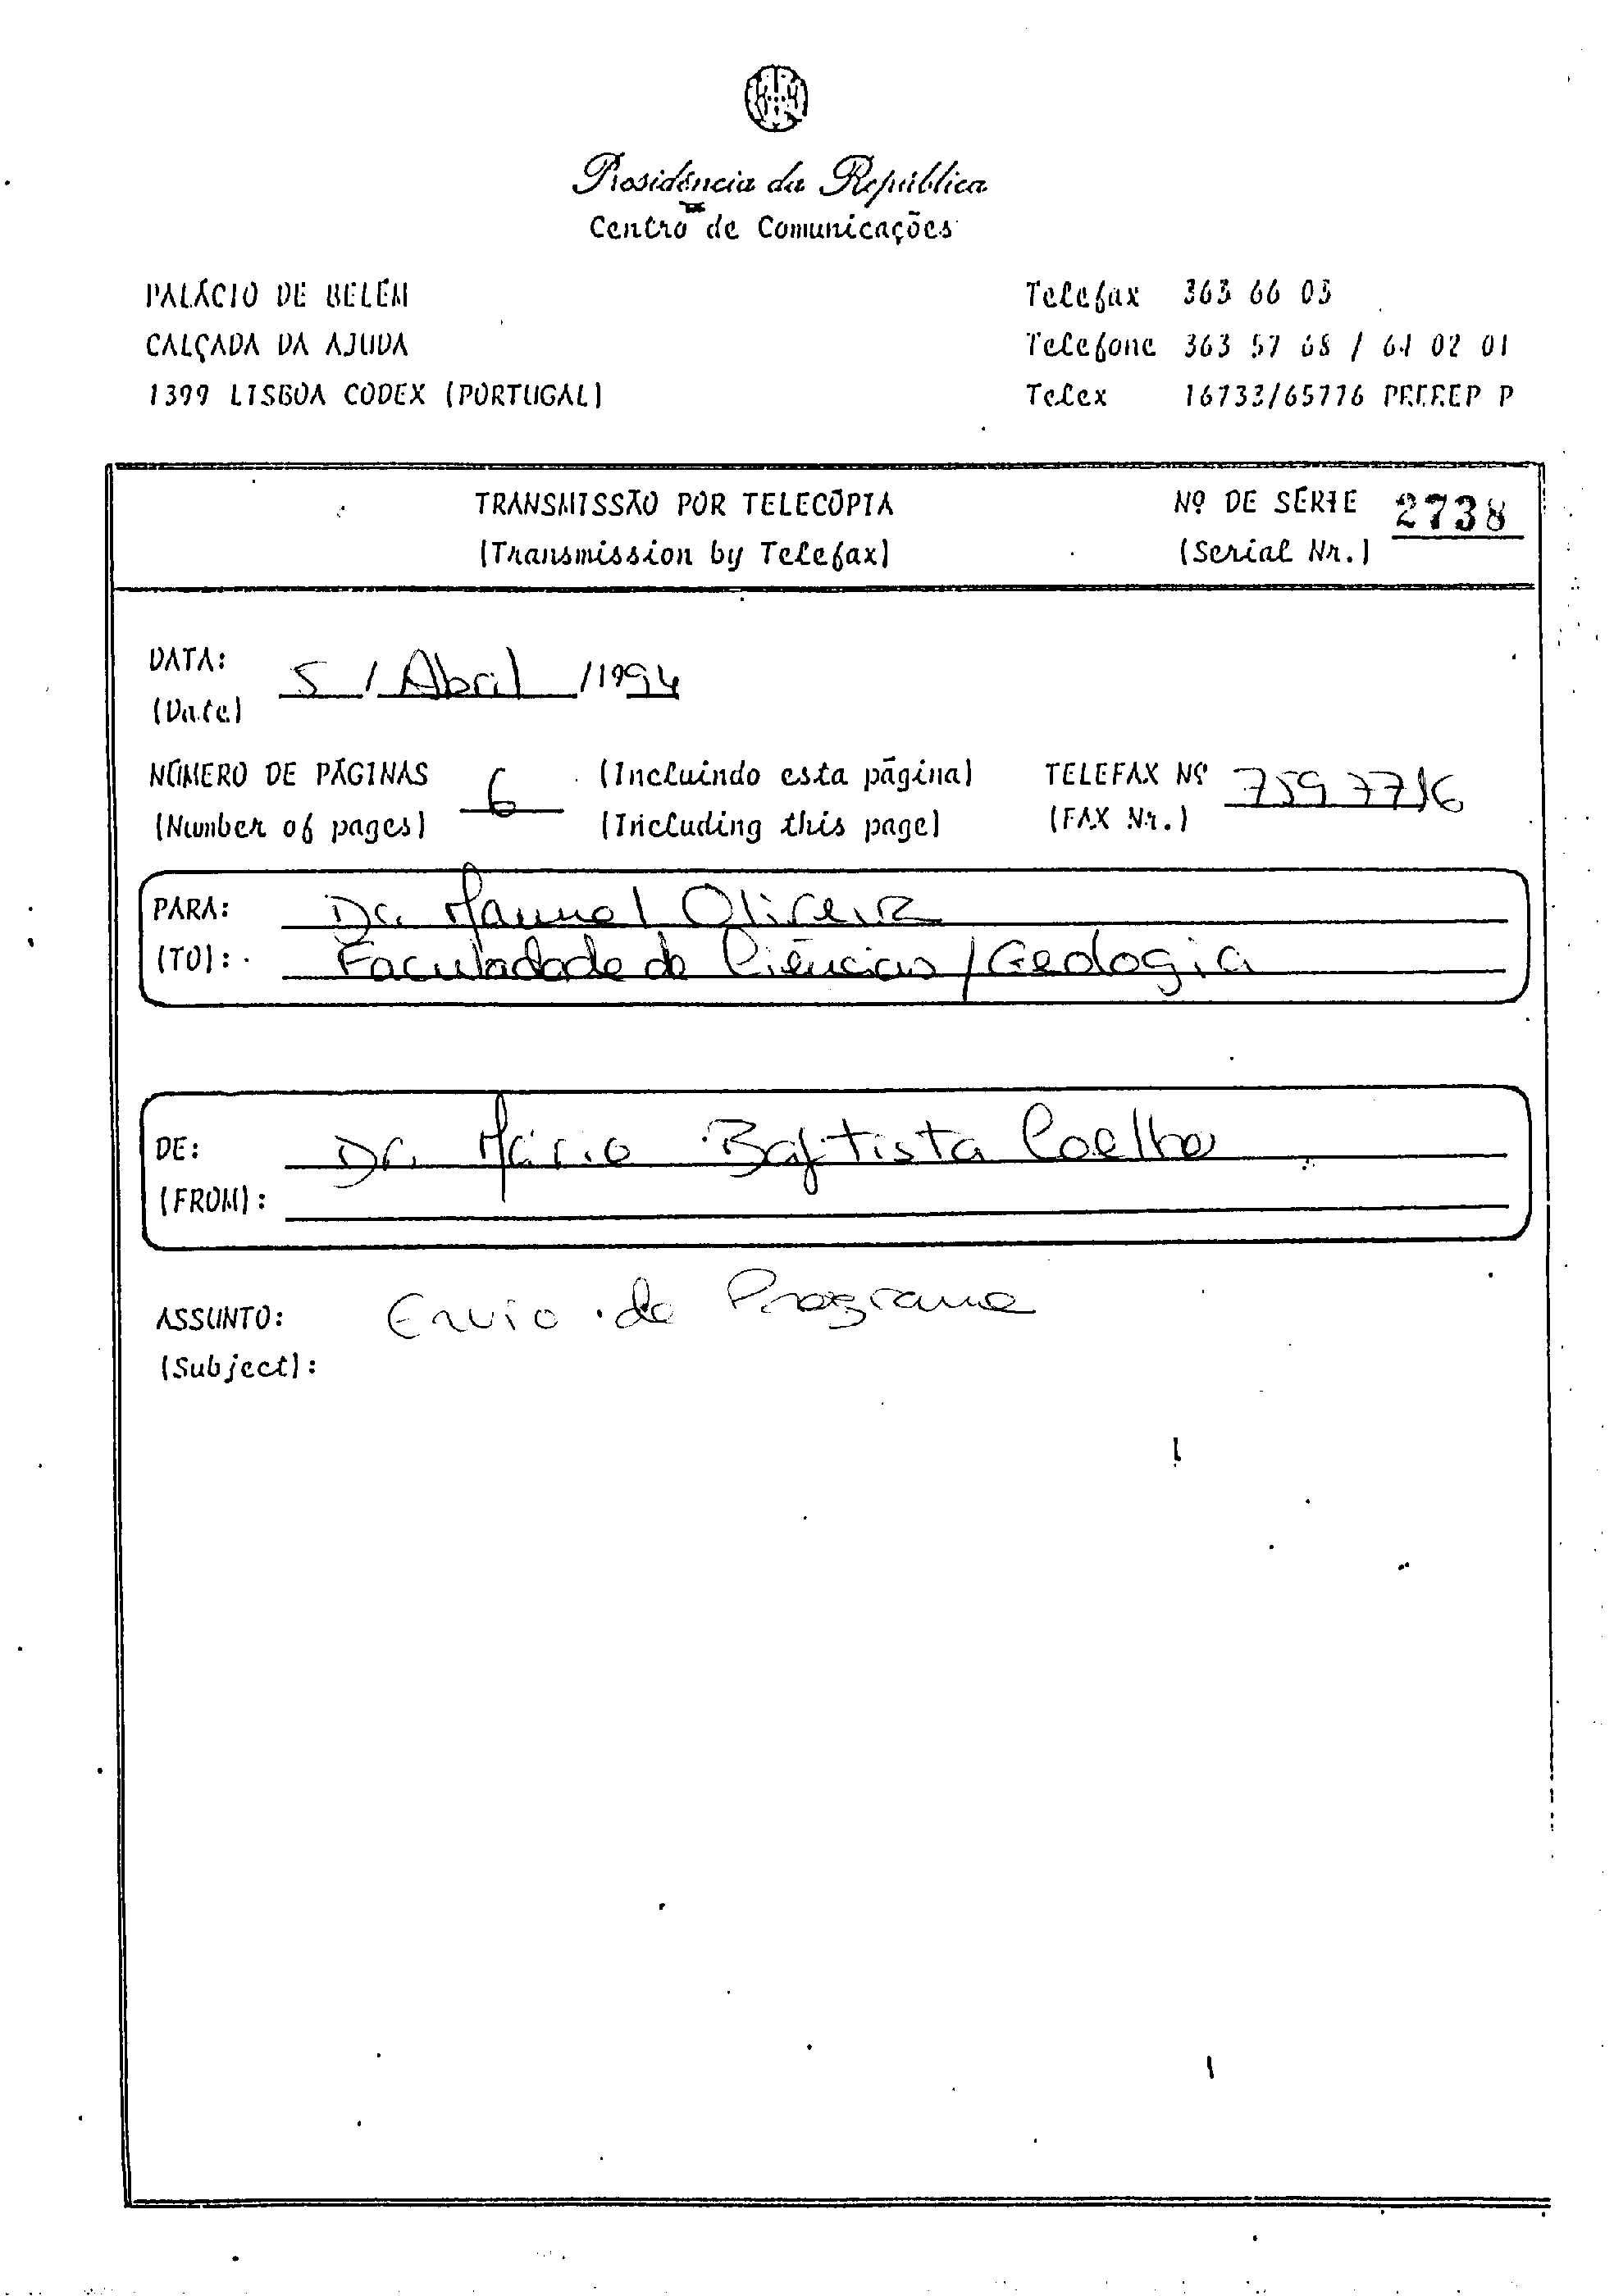 Presidência da República
Centro de Comunicações
PALÁCIO DE BELÉM
CALÇADA DA AJUDA
1399 LISBOA CODEX (PORTUGAL)
Telefax 363 66 03
Telefone 363 57 68 / 64 02 01
Telex 16733/65776 PREREP P
TRANSMISSÃO POR TELECÓPIA
(Transmission by Telefax)
Nº DE SÉRIE 2738
(Serial Nr.)
DATA: 5 / Abril / 1994
(Date)
NÚMERO DE PÁGINAS 6 (Incluindo esta página) TELEFAX Nº 7597716
(Number of pages) (Including this page) (FAX Nr.)
PARA: Dr. Manuel Oliveira
(TO): Faculdade de Ciências / Geologia
DE: Dr. Mário Baptista Coelho
(FROM):
ASSUNTO: Envio de Programa
(Subject):